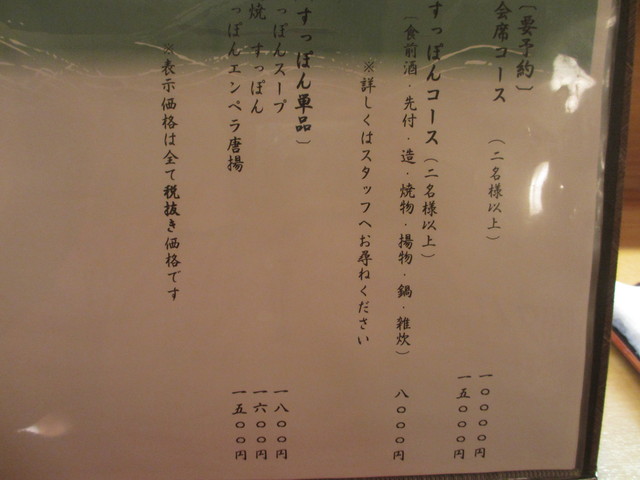 〔要予約〕
会席コース （二名様以上） 一〇〇〇〇円
一五〇〇〇円
すっぽんコース（二名様以上）
（食前酒・先付・造・焼物・揚物・鍋・雑炊） 八〇〇〇円
※詳しくはスタッフへお尋ねください
すっぽん単品〕
っぽんスープ 一八〇〇円
焼 すっぽん 一六〇〇円
っぽんエンペラ唐揚 一五〇〇円
※表示価格は全て税抜き価格です